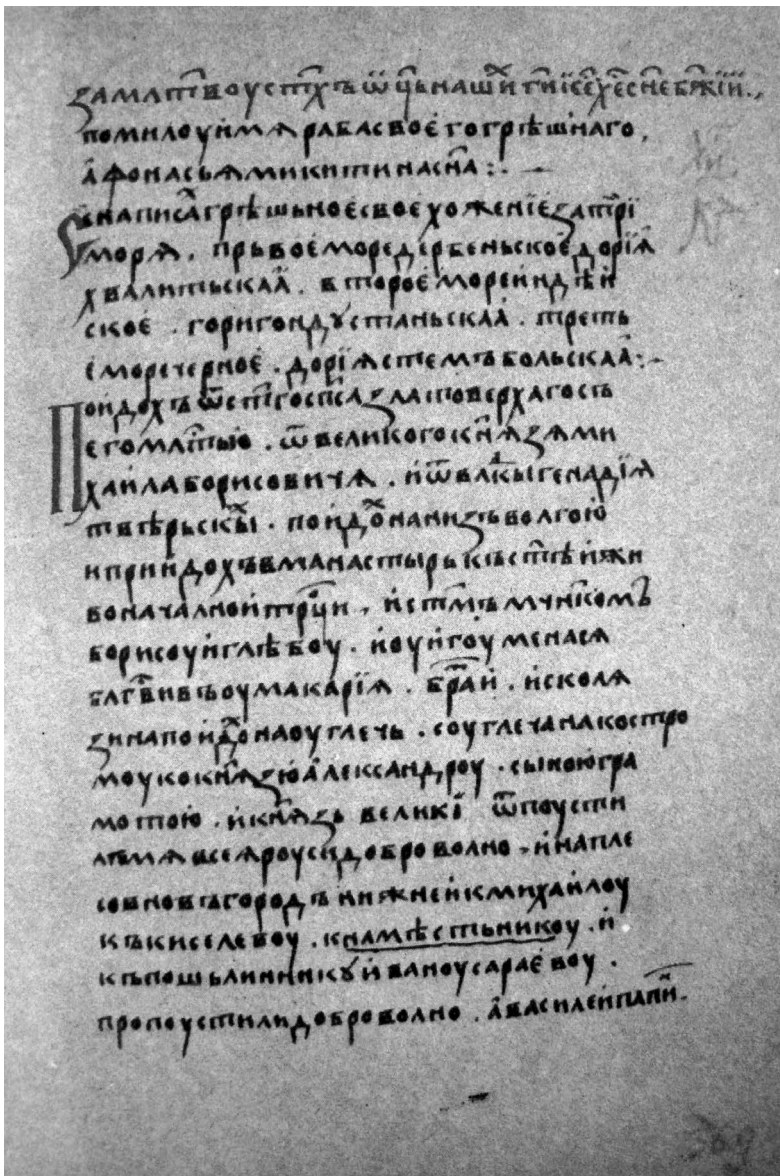 за млт҃въ ѹ стх҃ъ ѿц҃ь нашиⷯ ги҃ іс҃е хе҃ сн҃е бж҃їи.,
помилоуй мѧ раба своего грѣшнаго,
аѳонасьѧ микитина сн҃а :. —
Се написа грѣшьное свое хожение за три
морѧ . прьвое море дербеньское дорїа
хвалитьскаа . второе море индѣй
ское . гори гондустаньскаа . треть
е море черное . дорїѧ стемъбольскаа :. —
Поидохъ ѿ ст҃го сп҃са златоверхаго съ
его млт҃ью . ѿ великого кн҃ѧзѧ ми
хаила борисовичѧ . и ѿ влⷣкы генадїѧ
твѣрьскыⷯ . поидоⷯ на низъ волгою
и приидохъ в манастырь къ ст҃ѣй жи
воначалной трⷪ҇ци . и ст҃мъ мчн҃комъ
борисоу и глѣбоу . и оу игоумена сѧ
блг҃вивъ оу макарїѧ . бра҃ти . и с колѧ
зина поидоⷯ на оуглечь . с оуглеча на костро
моу ко кн҃ѧзю александроу . с ыною гра
мотою . и кн҃ѧзь великїй ѿпоусти
лъ мѧ всеѧ роуси доброволно . и на пле
со в новъгородъ нижней к михаилоу
къ киселевоу . к намѣстьникоу . и
къ пошьлинникоу иваноу сараевоу .
пропоустили доброволно . а василей папиⷩ .